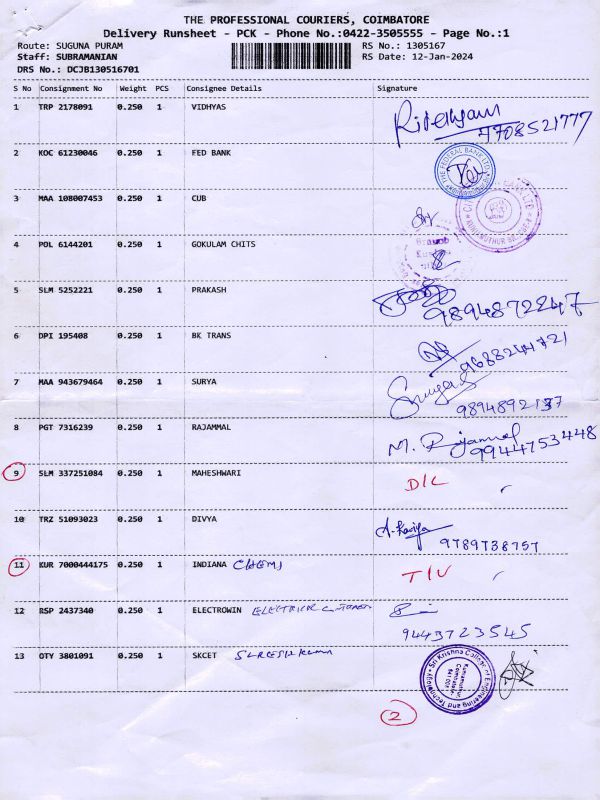 THE PROFESSIONAL COURIERS, COIMBATORE
Delivery Runsheet - PCK - Phone No.:0422-3505555 - Page No.:1
Route: SUGUNA PURAM
RS No.: 1305167
Staff: SUBRAMANIAN
RS Date: 12-Jan-2024
DRS No.: DCJB130516701
S No Consignment No Weight PCS Consignee Details Signature
1 TRP 2178091 0.250 1 VIDHYAS
7708521777
2 KOC 61230046 0.250 1 FED BANK
THE FEDERAL BANK LTD.
3 MAA 108007453 0.250 1 CUB
BANK LTD.
4 POL 6144201 0.250 1 GOKULAM CHITS
5 SLM 5252221 0.250 1 PRAKASH
9894872247
6 DPI 195408 0.250 1 BK TRANS
9688244721
7 MAA 943679464 0.250 1 SURYA
9894892137
8 PGT 7316239 0.250 1 RAJAMMAL M. Rajammal
9944753448
9 SLM 337251084 0.250 1 MAHESHWARI D/L
10 TRZ 51093023 0.250 1 DIVYA
9789738757
11 KUR 7000444175 0.250 1 INDIANA CHEMJ T/V
12 RSP 2437340 0.250 1 ELECTROWIN
9443723545
13 OTY 3801091 0.250 1 SKCET SURESHKUMAR
Sri Krishna College of Engineering and Technology
Kuniamuthur
Coimbatore
641 008
2